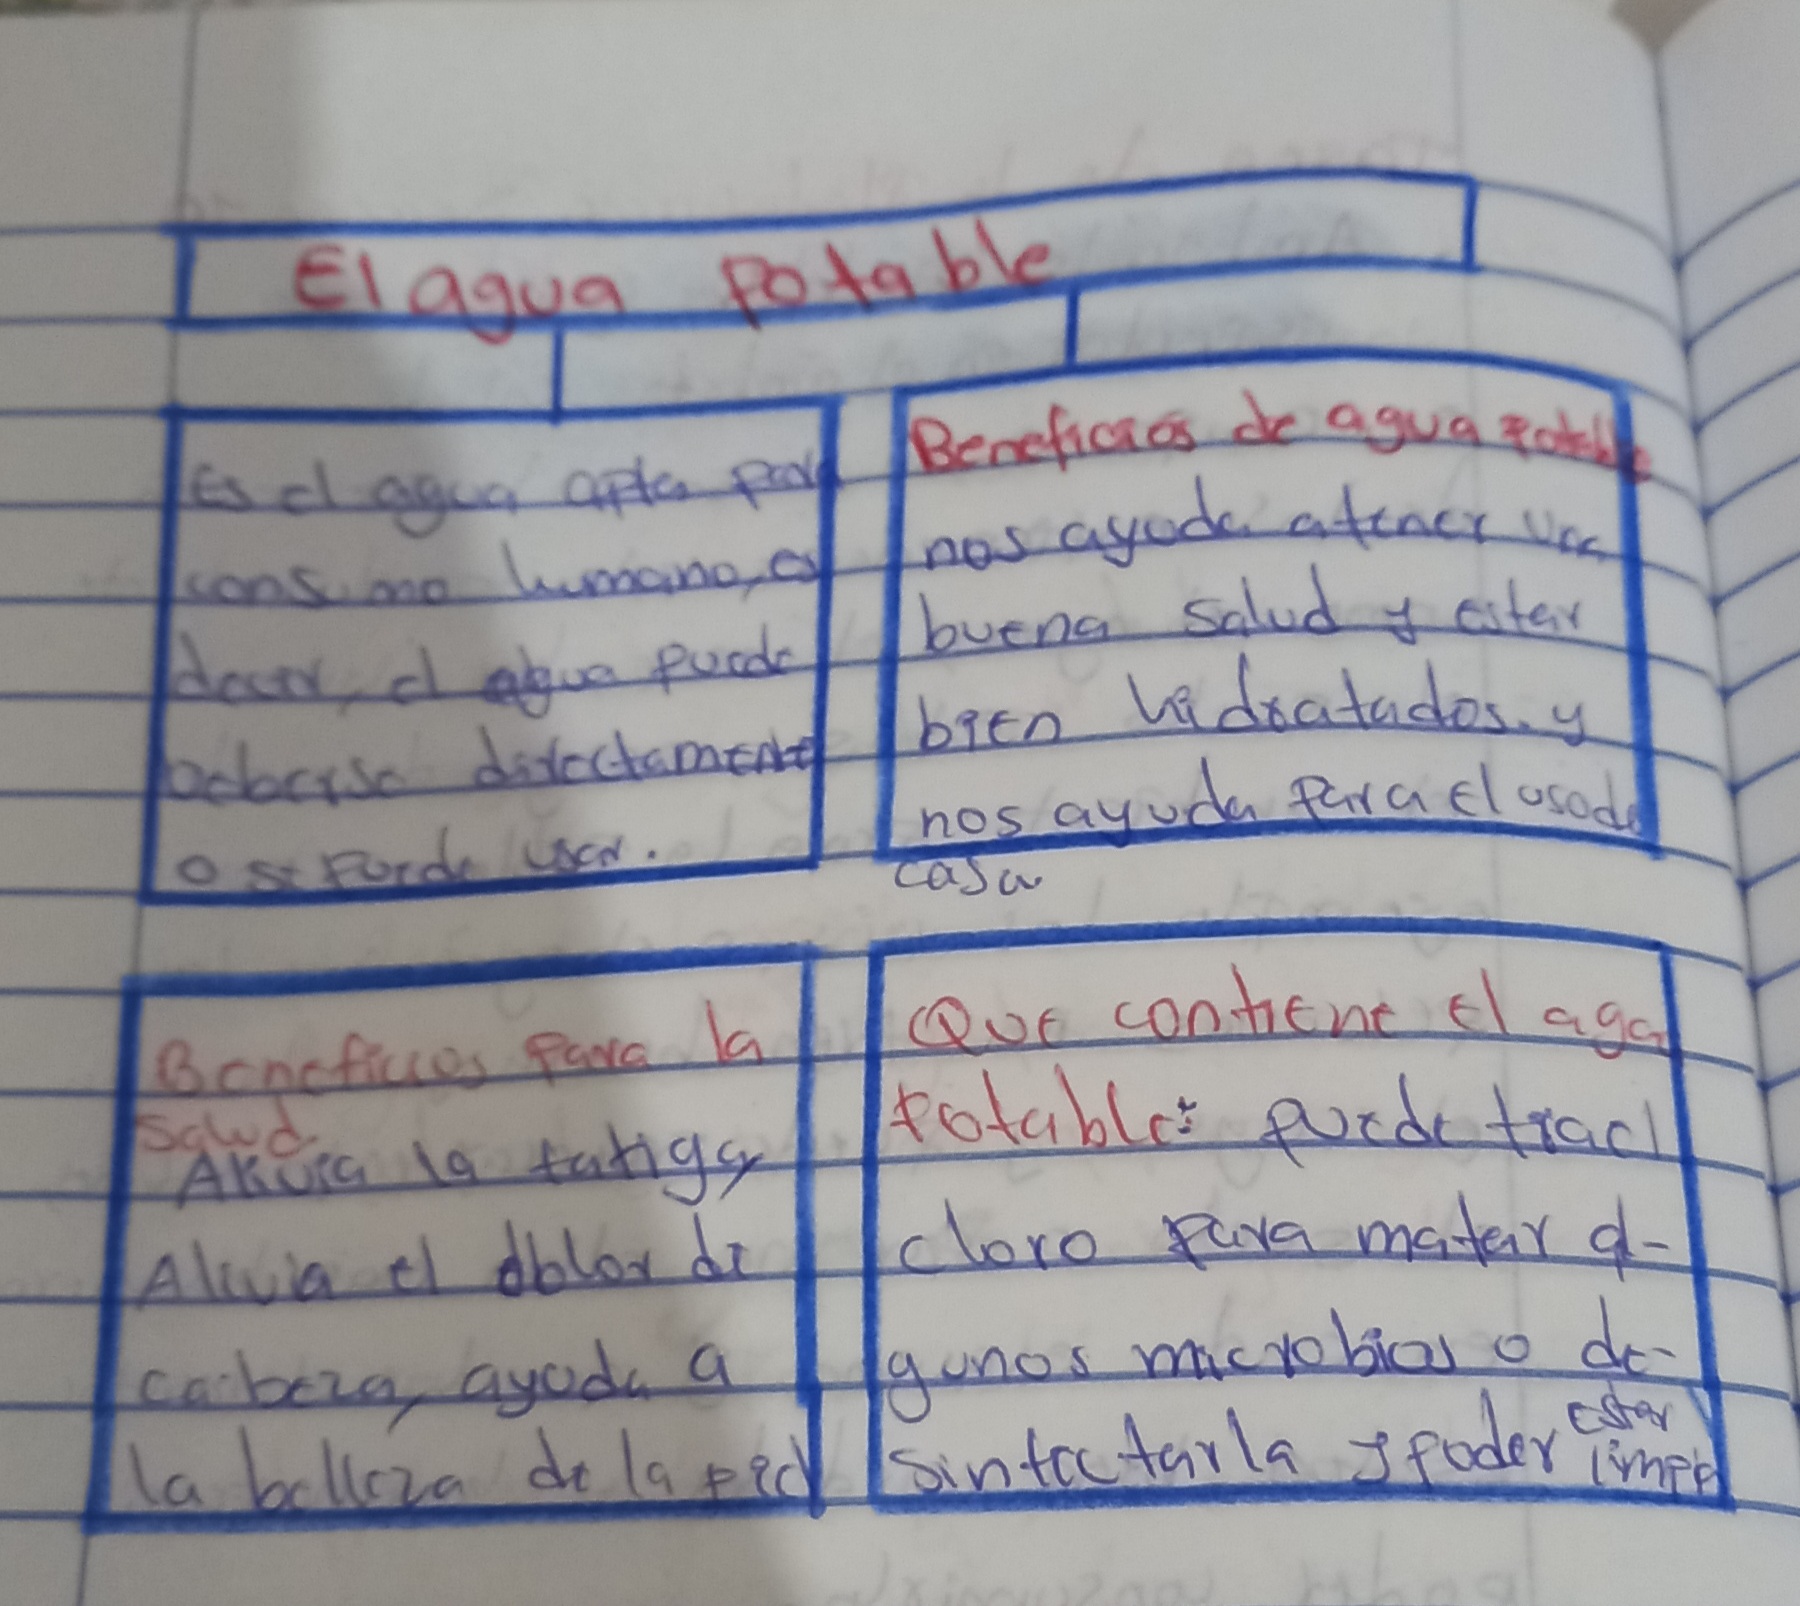 El agua potable
Es el agua apta para
consumo humano, es
decir, el agua puede
beberse directamente
o se puede usar.
Beneficios de agua potable
nos ayuda atener una
buena salud y estar
bien hidratados. y
nos ayuda para el usode
casa
Beneficios para la
salud
Alivia la fatiga,
Alivia el dolor de
cabeza, ayuda a
la belleza de la piel
Que contiene el aga
potable: puede trael
cloro para matar al-
gunos microbios o de-
sinfectarla y poder estar
limpia